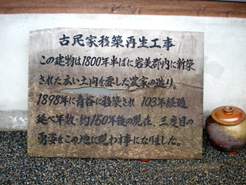 古民家移築再生工事
この建物は1800年半ばに岩美郡内に新築
された広い土間を要した農家の造り。
1898年に青谷に移築され 103年経過
延べ年数・約160年後の現在、三度目の
勇姿をこの地に現わす事になりました。